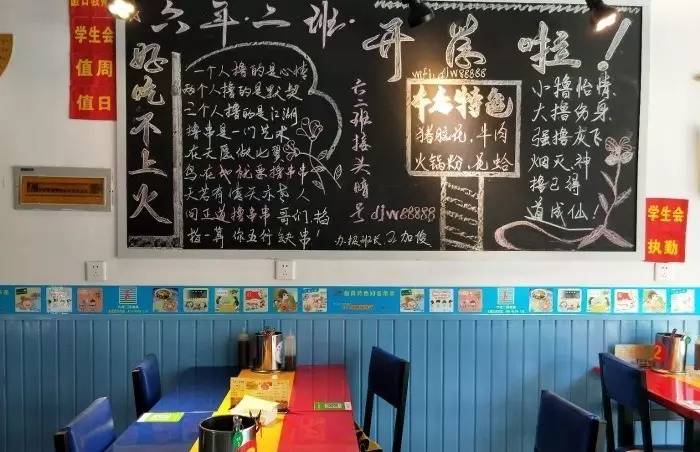 学生会
值周
值日
六年·二班·
开荤啦！
好吃不上火
一个人撸的是心情
两个人撸的是默契
三个人撸的是江湖
撸串是一门艺术
在天愿做比翼
在地就要撸串串
天若有情天亦老 人
间正道撸串串 哥们 掐
指一算 你五行缺串！
办报班长
六二班接头暗号
djw88888
djw88888
本店特色
猪脸花、牛肉
火锅粉、花蛤
小撸怡情
大撸伤身
强撸灰飞
烟灭、神
撸已得
道成仙！
学生会
执勤
2